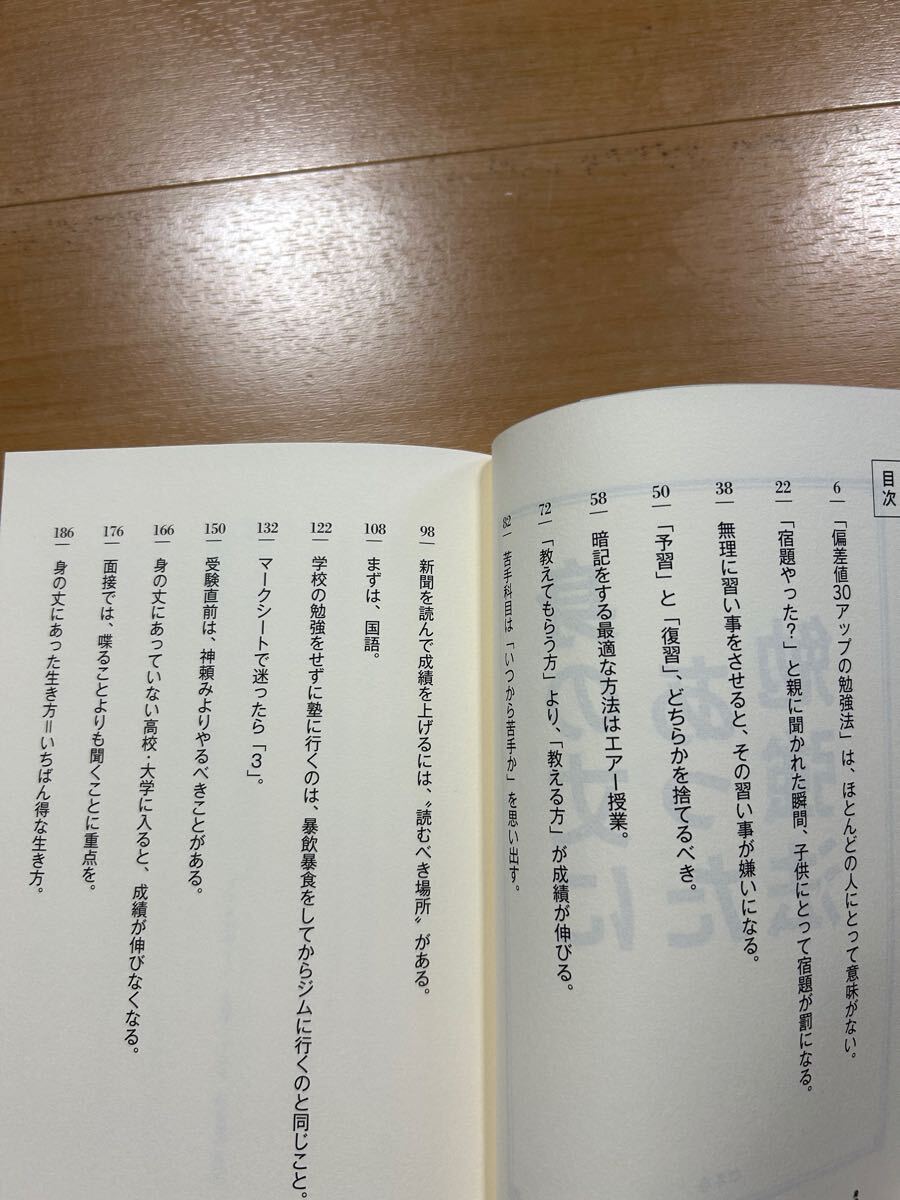 目次
6 「偏差値30アップの勉強法」は、ほとんどの人にとって意味がない。
22 「宿題やった？」と親に聞かれた瞬間、子供にとって宿題が罰になる。
38 無理に習い事をさせると、その習い事が嫌いになる。
50 「予習」と「復習」、どちらかを捨てるべき。
58 暗記をする最適な方法はエアー授業。
72 「教えてもらう方」より、「教える方」が成績が伸びる。
82 苦手科目は「いつから苦手か」を思い出す。
98 新聞を読んで成績を上げるには、〝読むべき場所〟がある。
108 まずは、国語。
122 学校の勉強をせずに塾に行くのは、暴飲暴食をしてからジムに行くのと同じこと。
132 マークシートで迷ったら「3」。
150 受験直前は、神頼みよりやるべきことがある。
166 身の丈にあっていない高校・大学に入ると、成績が伸びなくなる。
176 面接では、喋ることよりも聞くことに重点を。
186 身の丈にあった生き方＝いちばん得な生き方。